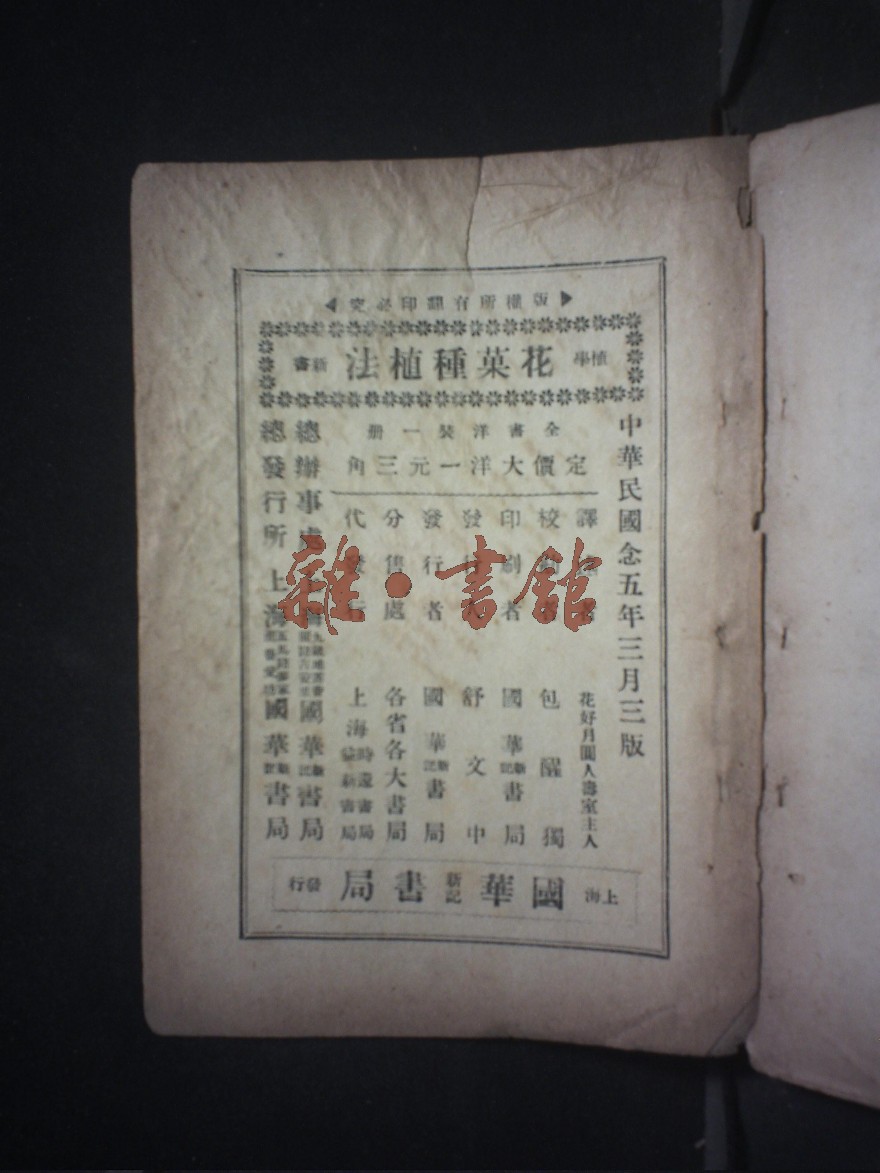 版權所有翻印必究
植學新書 花菓種植法
中華民國念五年三月三版
全書洋裝一册
定價大洋一元三角
譯 者 花好月圓人壽室主人
校 者 包醒獨
印刷者 國華新記書局
發 舒文中
發行者 國華新記書局
分售處 各省各大書局
代發行 上海時還書局 益新書局
總辦事處 上海 國華新記書局
總發行所 上海 國華新記書局
上海國華新記書局發行
雜·書館